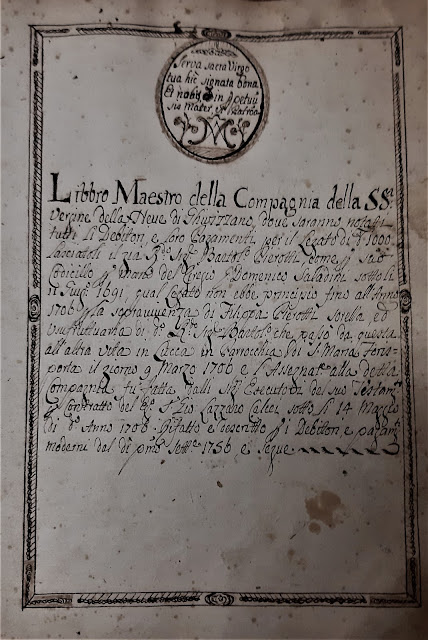 Serva sacra Virgo
tua hic signata bona
Et nobis in ppetuū
sis Mater
M
Libbro Maestro della Compagnia della SS.a
Vergine della Neve di Ghivizzano, dove saranno notati
tutti li Debitori, e loro Pagamenti per il Legato di 1000
lasciatoli il già Bartol. Pierotti come p suo
Codicillo p mano del Domenico Saladini sotto li
11 1691, qual Legato non ebbe principio fino all'Anno
1706 p la sopravivenza di Filippa Pierotti sorella ed
usufruttuaria di Bartol. che passò da questa
all'altra vita in Lucca in Parrocchia di S. Maria Foris-
porta il giorno 9 Marzo 1706 e l'Assegnat. alla detta
Compagnia fu fatta dalli Esecutori del suo Testam.
p Contratto del Lazzaro sotto li 14 Marzo
di d.o Anno 1708. descritto p i Debitori, e pagam.
moderni dal dì pmo Sett.e 1756 e segue